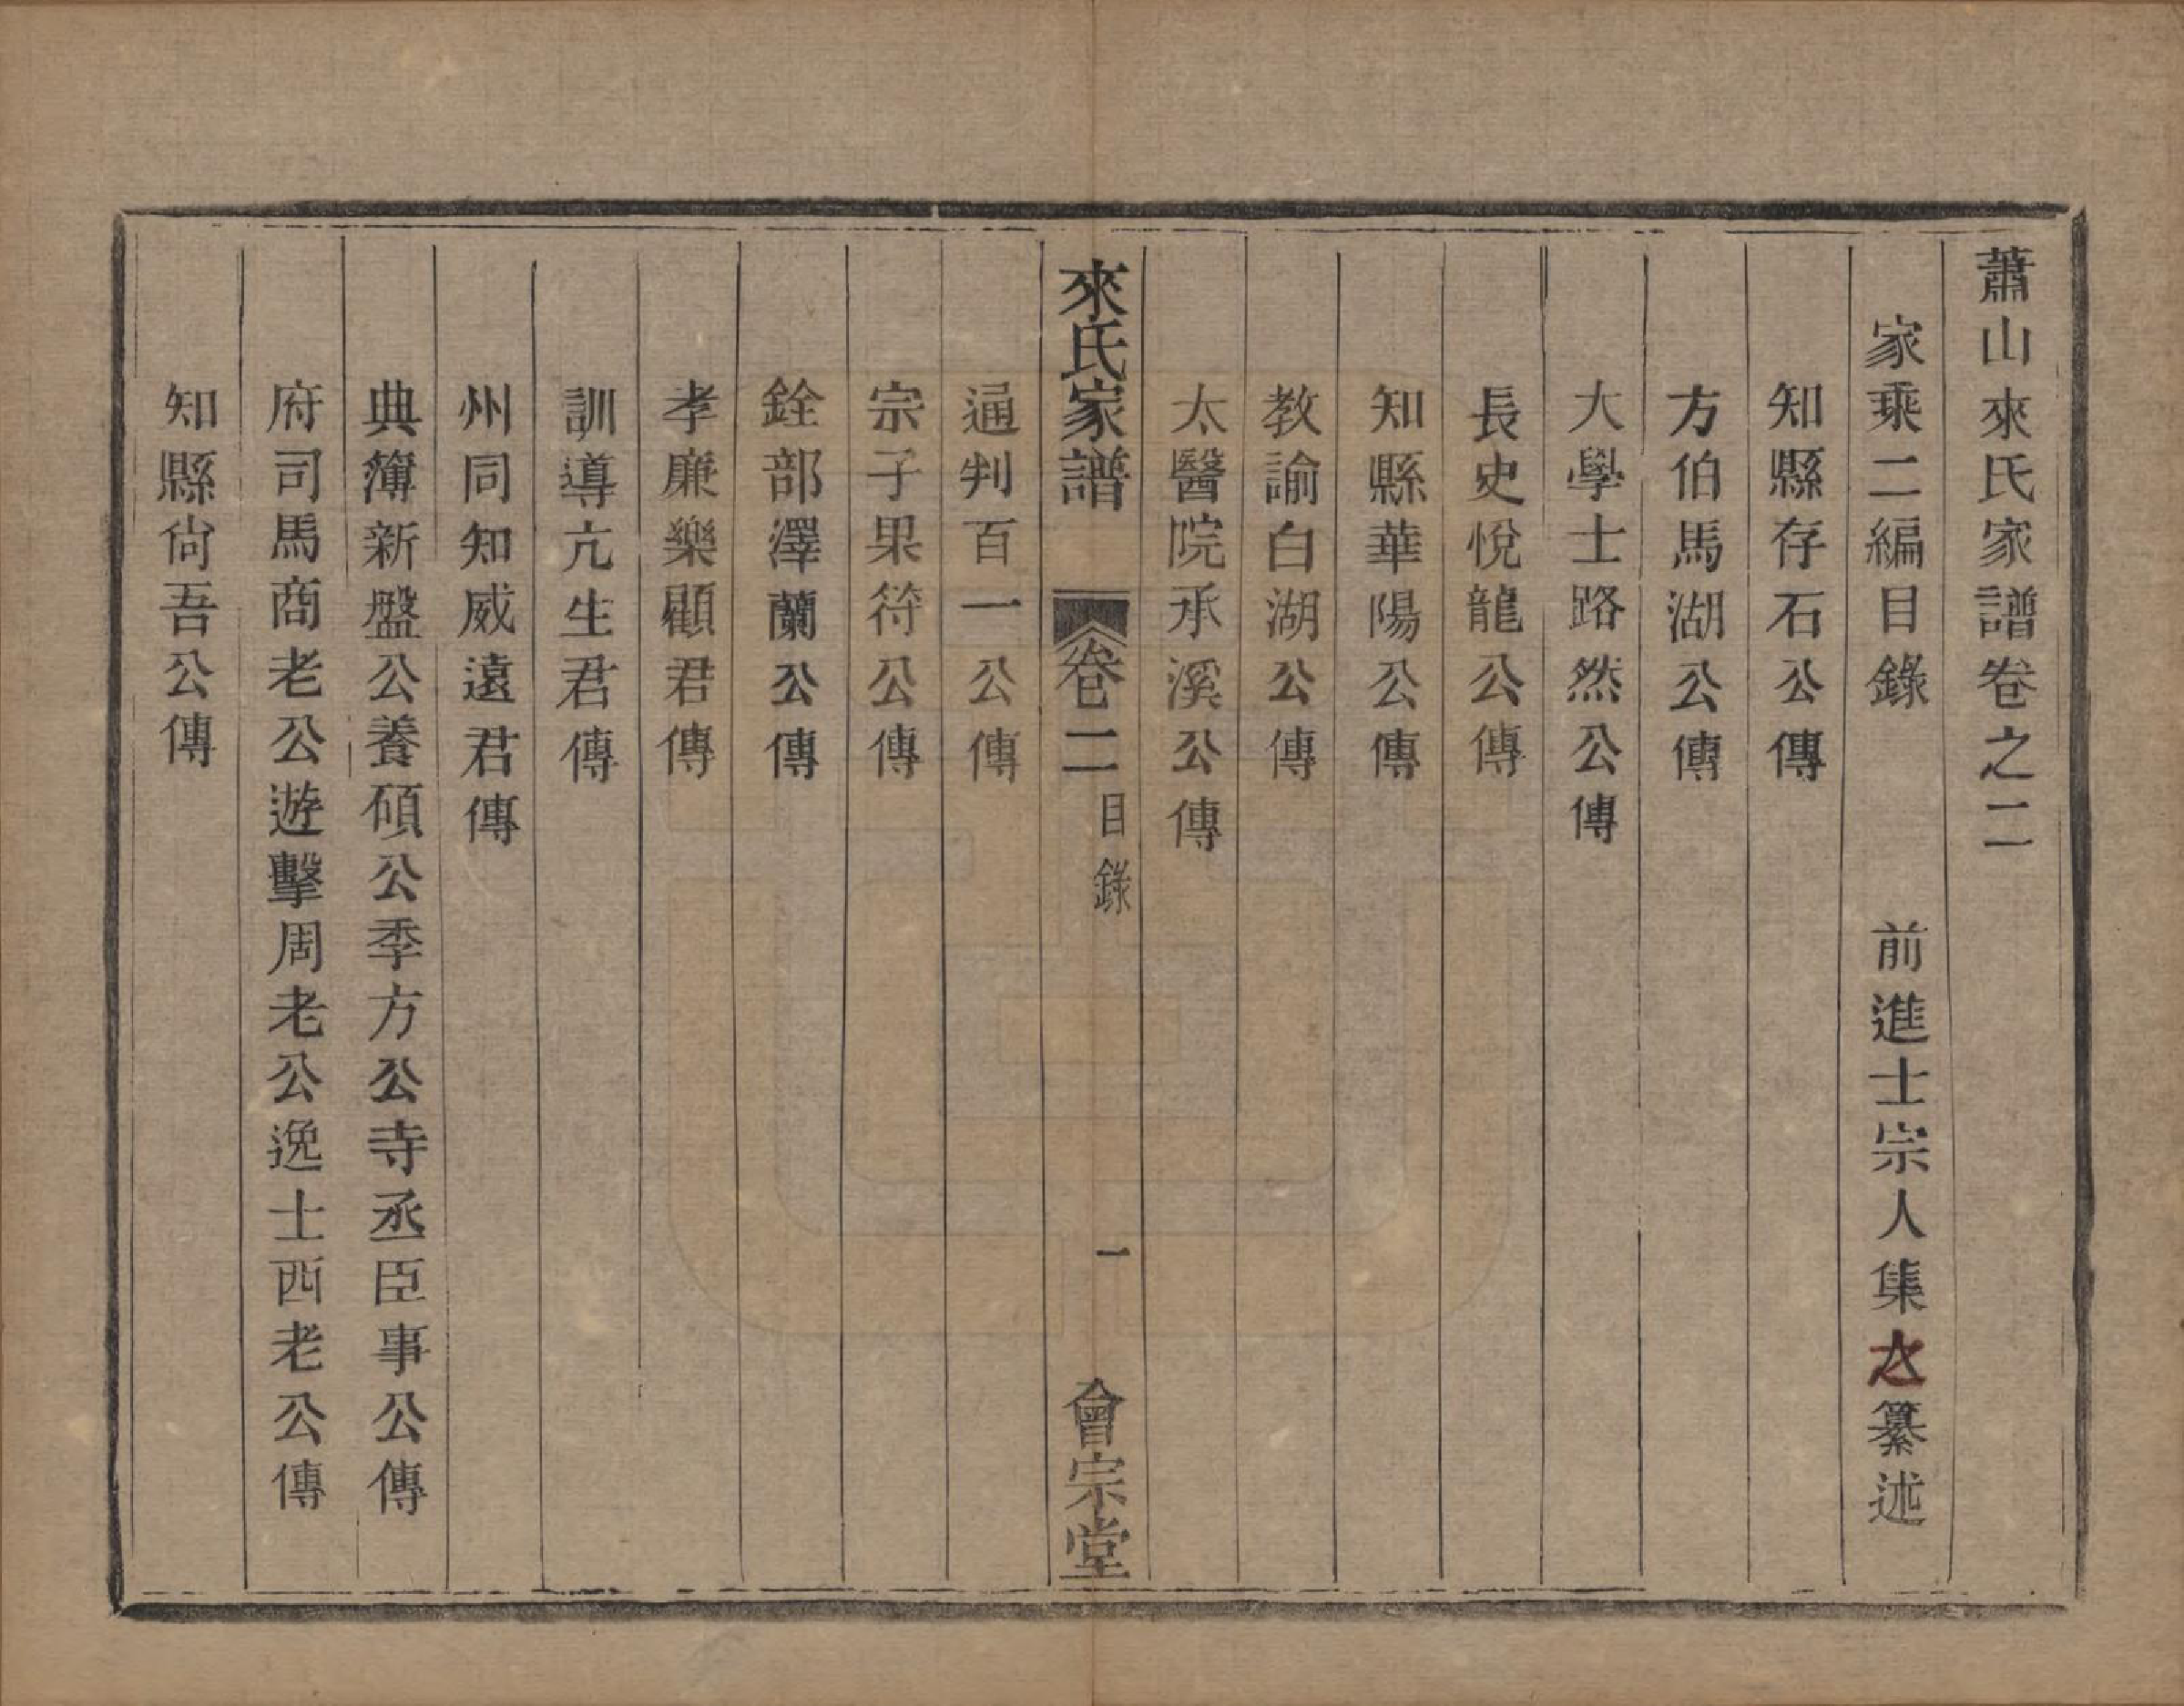 蕭山來氏家譜卷之二
家乘二編目錄 前進士宗人集之纂述
知縣存石公傳
方伯馬湖公傳
大學士路然公傳
長史悅龍公傳
知縣華陽公傳
教諭白湖公傳
太醫院承溪公傳
來氏家譜 卷二 目錄 一 會宗堂
通判百一公傳
宗子果符公傳
銓部澤蘭公傳
孝廉樂顧君傳
訓導亢生君傳
州同知威遠君傳
典簿新盤公養碩公季方公寺丞臣事公傳
府司馬商老公遊擊周老公逸士西老公傳
知縣尙吾公傳